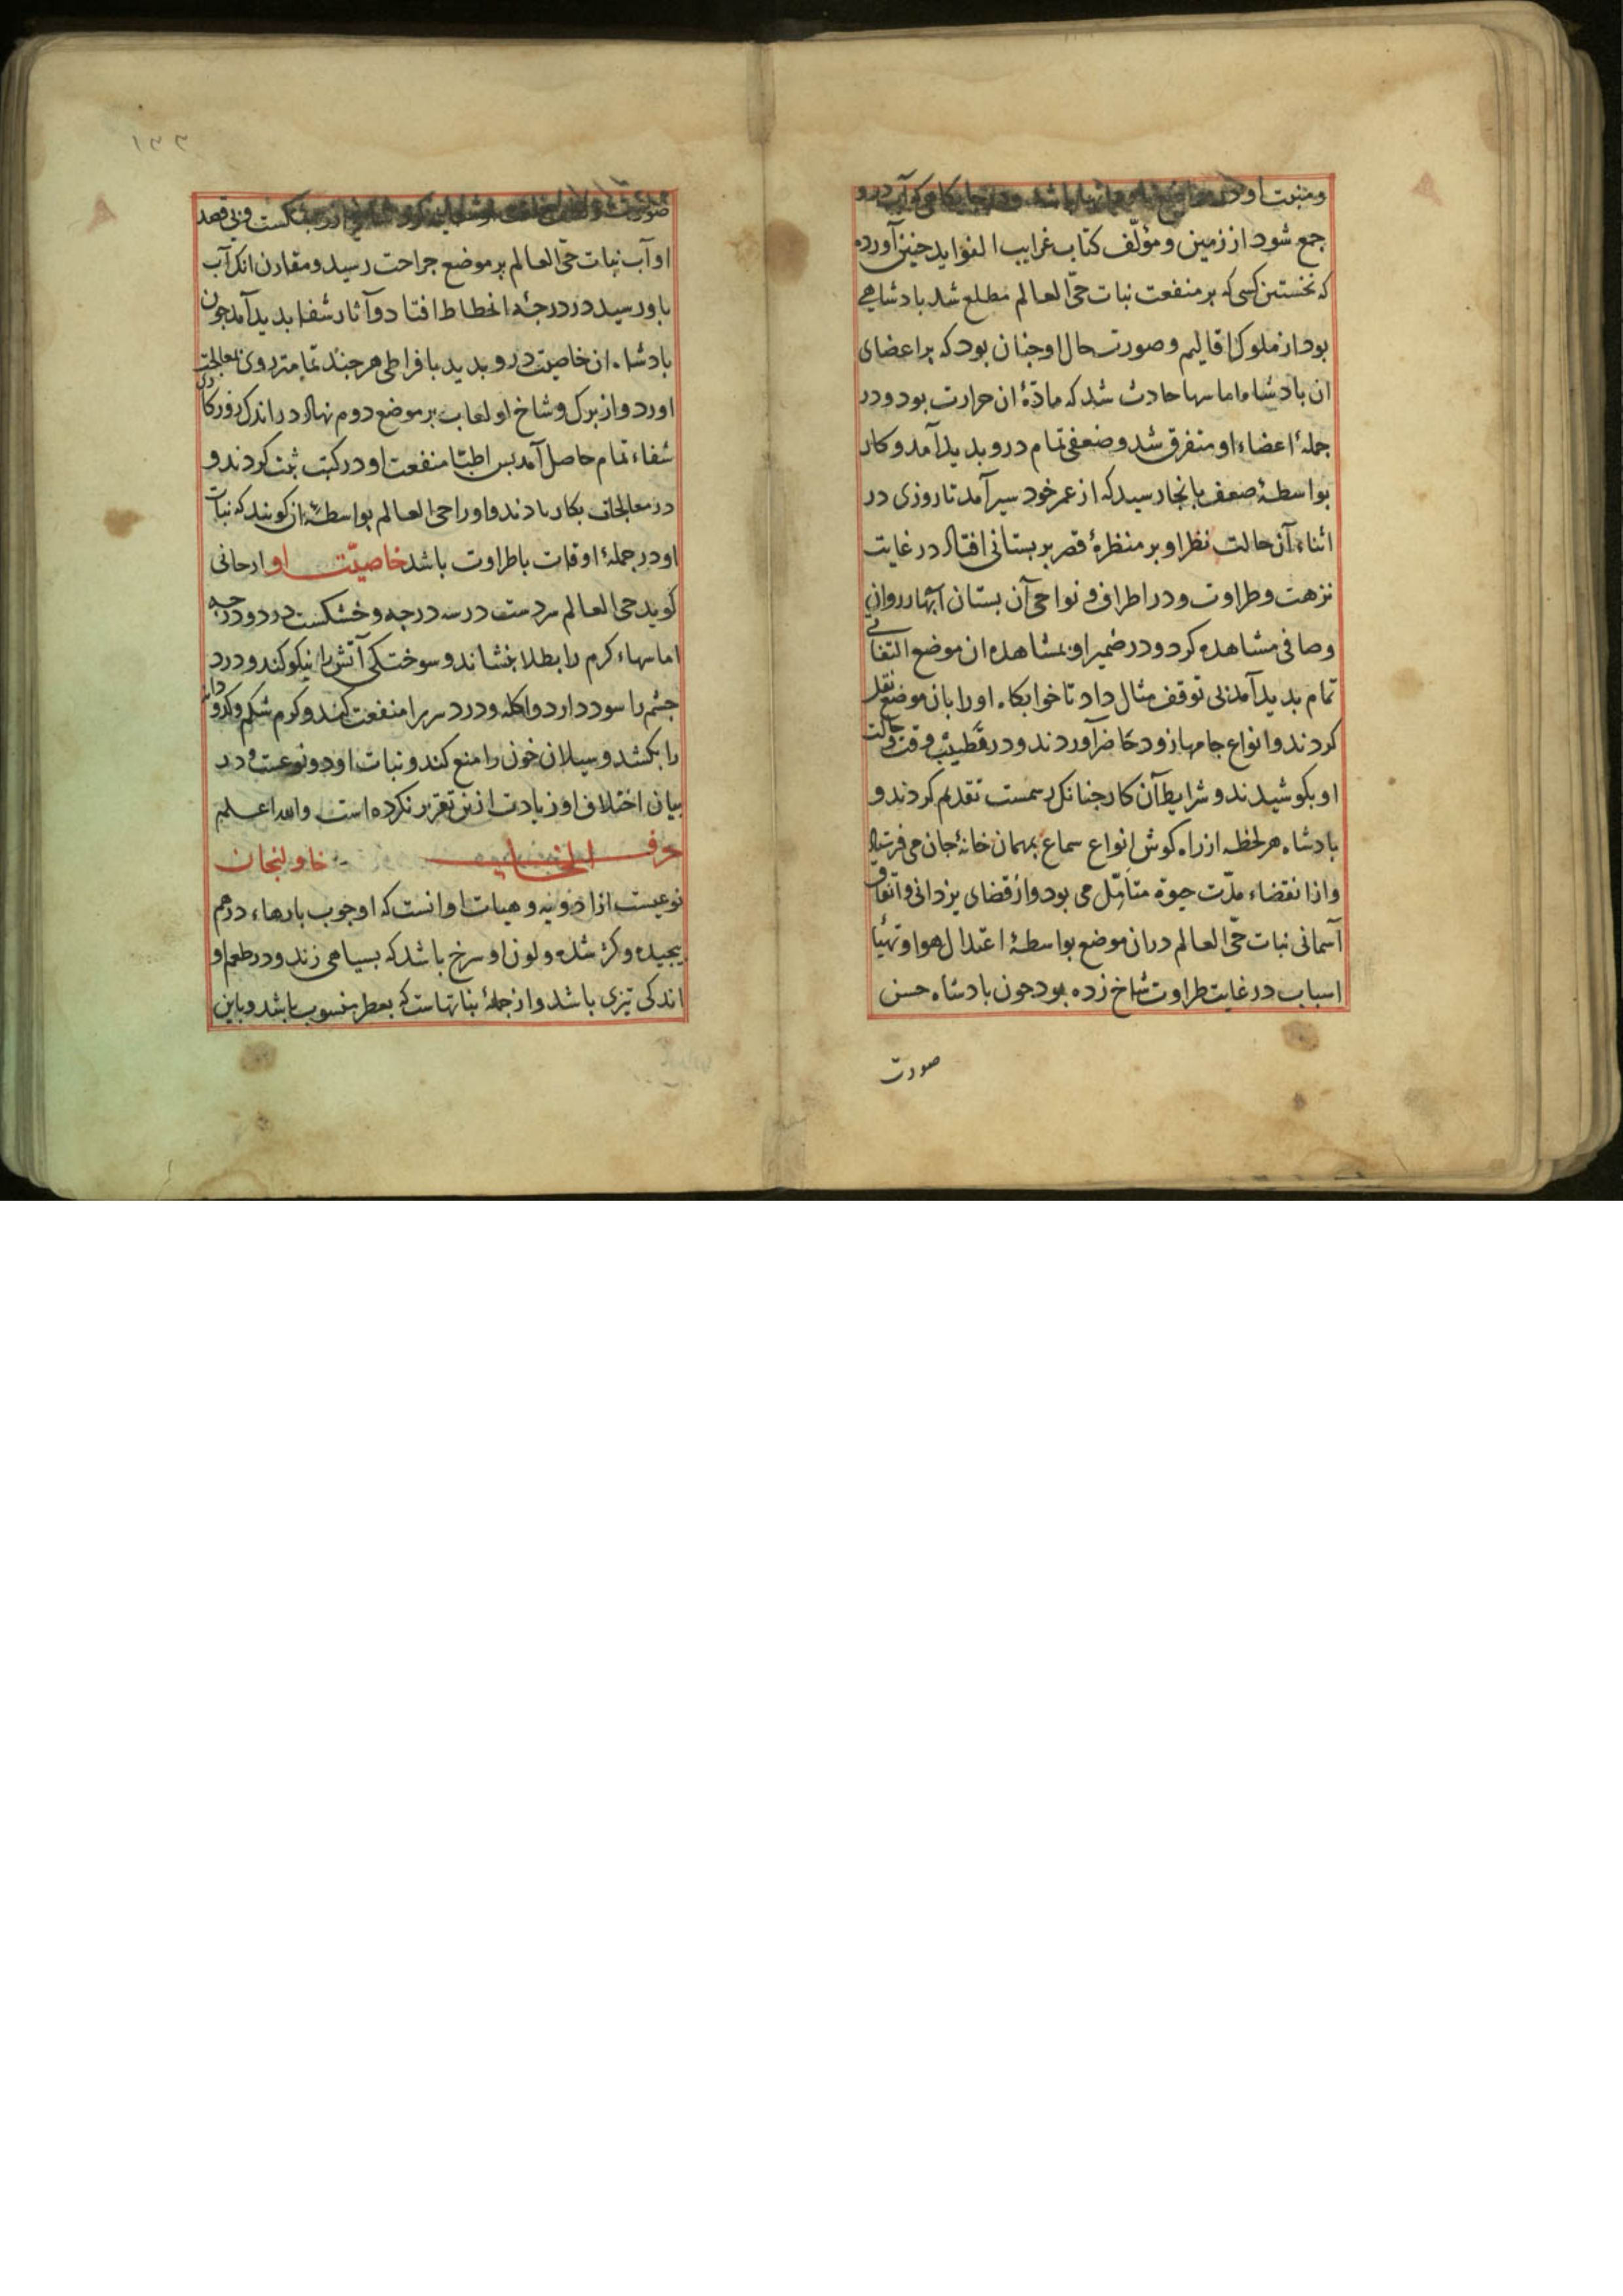 ومنبت او در
جمع شود از زمین و مؤلّف کتاب غرایب الفواید جنین آورده
که نخستین کسی که بر منفعت نبات حیّ العالم مطلع شد بادشاهی
بود از ملوک اقالیم و صورت حال او جنان بود که بر اعضای
ان بادشاه اماسها حادث شد که مادّهٔ ان حرارت بود و در
جملهٔ اعضاء او متفرق شد و ضعفی تمام درو بدید آمد و کار
بواسطهٔ ضعف بانجا رسید که از عمر خود سیر آمد تا روزی در
اثناء آن حالت نظر او بر منظرهٔ قصر بر بستانی افتاد در غایت
نزهت و طراوت و در اطراف و نواحی آن بستان آبهار روان
وصافی مشاهده کرد و در ضمیر او بمشاهده ان موضع التفاتی
تمام بدید آمد بی توقف مثال داد تا خوابکاه او را بان موضع نقل
کردند و انواع جامها زود حاضر آوردند و در وقت و حالت
او بکوشیدند و شرایط آن کار جنانک رسمست تقدیم کردند و
بادشاه هر لحظه از راه کوش انواع سماع بمهمان خانهٔ جان می فرستاد
و از انقضاء مدّت حیوة متأمّل می بود و از قضای یزدانی و اتّفاق
آسمانی نبات حیّ العالم دران موضع بواسطهٔ اعتدال هوا و تهیّأ
اسباب در غایت طراوت شاخ زده بود جون بادشاه حسن
صورت
۱۳۳
صورت بشکست و بی قصد
او آب نبات حیّ العالم بر موضع جراحت رسید و مقارن انک آب
باو رسید در درجهٔ انحطاط افتاد و آثار شفا بدید آمد جون
بادشاه ان خاصیت درو بدید بافراطی هر جند تمامتر روی بمعالجت
اورد و از برک و شاخ او لعاب بر موضع دوم نهاد در اندک روزکاری
شفاء تمام حاصل آمد بس اطبّا منفعت او در کتب ثبت کردند و
در معالجات بکار دادند و او را حی العالم بواسطهٔ ان کویند که نبات
او در جملهٔ اوقات با طراوت باشد خاصیّت او ارجانی
کوید حی العالم سردست در سه درجه و خشکست در دو درجه
اماسهاء کرم را بطلا بنشاند و سوختکی آتش را نیکو کند و درد
جشم را سود دارد و اکله و درد سر را منفعت کند و کرم شکم و کدو دانه
را بکشد و سیلان خون را منع کند و نبات او دو نوعست و در
بیان اختلاف او زیادت ازین تقریر نکرده است والله اعلم
حرف الخا خاولنجان
نوعیست از ادویه و هیات او انست که او جوب بارهاء درهم
بیجیده و کژ شده و لون او سرخ باشد که بسیاهی زند و در طعم او
اندکی تیزی باشد و از جملهٔ نباتهاست که بعطر منسوب باشد و باین